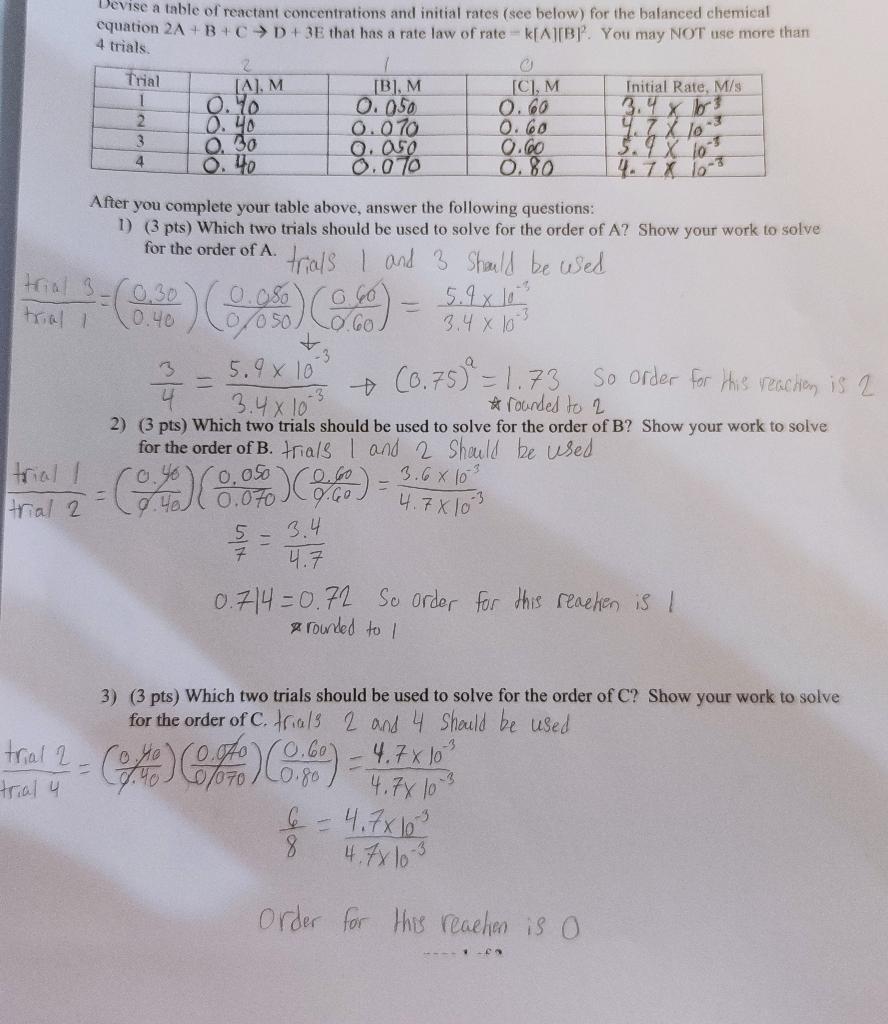 Devise a table of reactant concentrations and initial rates (see below) for the balanced chemical
equation 2A + B + C → D + 3E that has a rate law of rate = k[A][B]². You may NOT use more than
4 trials.
2 1 0
Trial [A], M [B], M [C], M Initial Rate, M/s
1 0.40 0.050 0.60 3.4 x 10⁻³
2 0.40 0.070 0.60 4.7 x 10⁻³
3 0.30 0.050 0.60 5.9 x 10⁻³
4 0.40 0.070 0.80 4.7 x 10⁻³
After you complete your table above, answer the following questions:
1) (3 pts) Which two trials should be used to solve for the order of A? Show your work to solve
for the order of A. trials 1 and 3 should be used
trial 3 / trial 1 = (0.30 / 0.40) (0.050 / 0.050) (0.60 / 0.60) = 5.9 x 10⁻³ / 3.4 x 10⁻³
↓
3 / 4 = 5.9 x 10⁻³ / 3.4 x 10⁻³ → (0.75)ᵃ = 1.73 So order for this reaction is 2
* rounded to 2
2) (3 pts) Which two trials should be used to solve for the order of B? Show your work to solve
for the order of B. trials 1 and 2 should be used
trial 1 / trial 2 = (0.40 / 0.40) (0.050 / 0.070) (0.60 / 0.60) = 3.6 x 10⁻³ / 4.7 x 10⁻³
5 / 7 = 3.4 / 4.7
0.714 = 0.72 So order for this reaction is 1
* rounded to 1
3) (3 pts) Which two trials should be used to solve for the order of C? Show your work to solve
for the order of C. trials 2 and 4 should be used
trial 2 / trial 4 = (0.40 / 0.40) (0.070 / 0.070) (0.60 / 0.80) = 4.7 x 10⁻³ / 4.7 x 10⁻³
6 / 8 = 4.7 x 10⁻³ / 4.7 x 10⁻³
Order for this reaction is 0